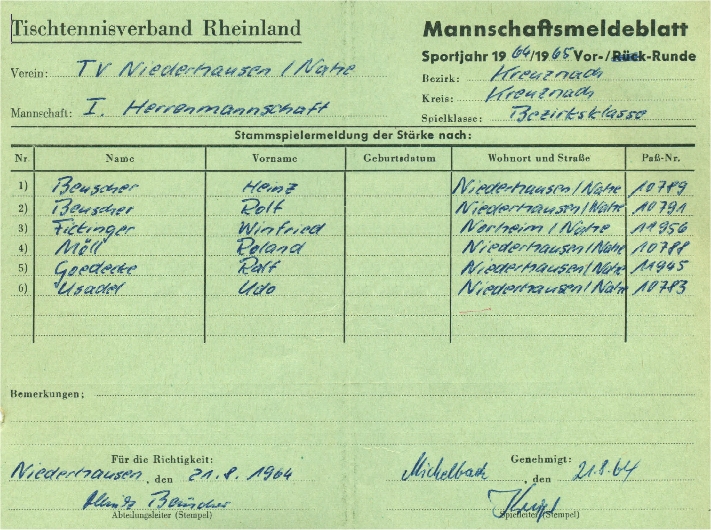 Tischtennisverband Rheinland
Mannschaftsmeldeblatt
Sportjahr 1964/1965 Vor-/Rück-Runde
Verein: TV Niederhausen / Nahe
Bezirk: Kreuznach
Kreis: Kreuznach
Mannschaft: I. Herrenmannschaft
Spielklasse: Bezirksklasse
Stammspielermeldung der Stärke nach:
Nr. Name Vorname Geburtsdatum Wohnort und Straße Paß-Nr.
1) Beuscher Heinz Niederhausen / Nahe 10789
2) Beuscher Rolf Niederhausen / Nahe 10791
3) Fickinger Winfried Norheim / Nahe 11956
4) Möll Roland Niederhausen / Nahe 10788
5) Goedecke Ralf Niederhausen / Nahe 11945
6) Usadel Udo Niederhausen / Nahe 10783
Bemerkungen:
Für die Richtigkeit: Genehmigt:
Niederhausen, den 21.8.1964 Michelbach, den 21.8.64
Beuscher
Abteilungsleiter (Stempel) Spielleiter (Stempel)